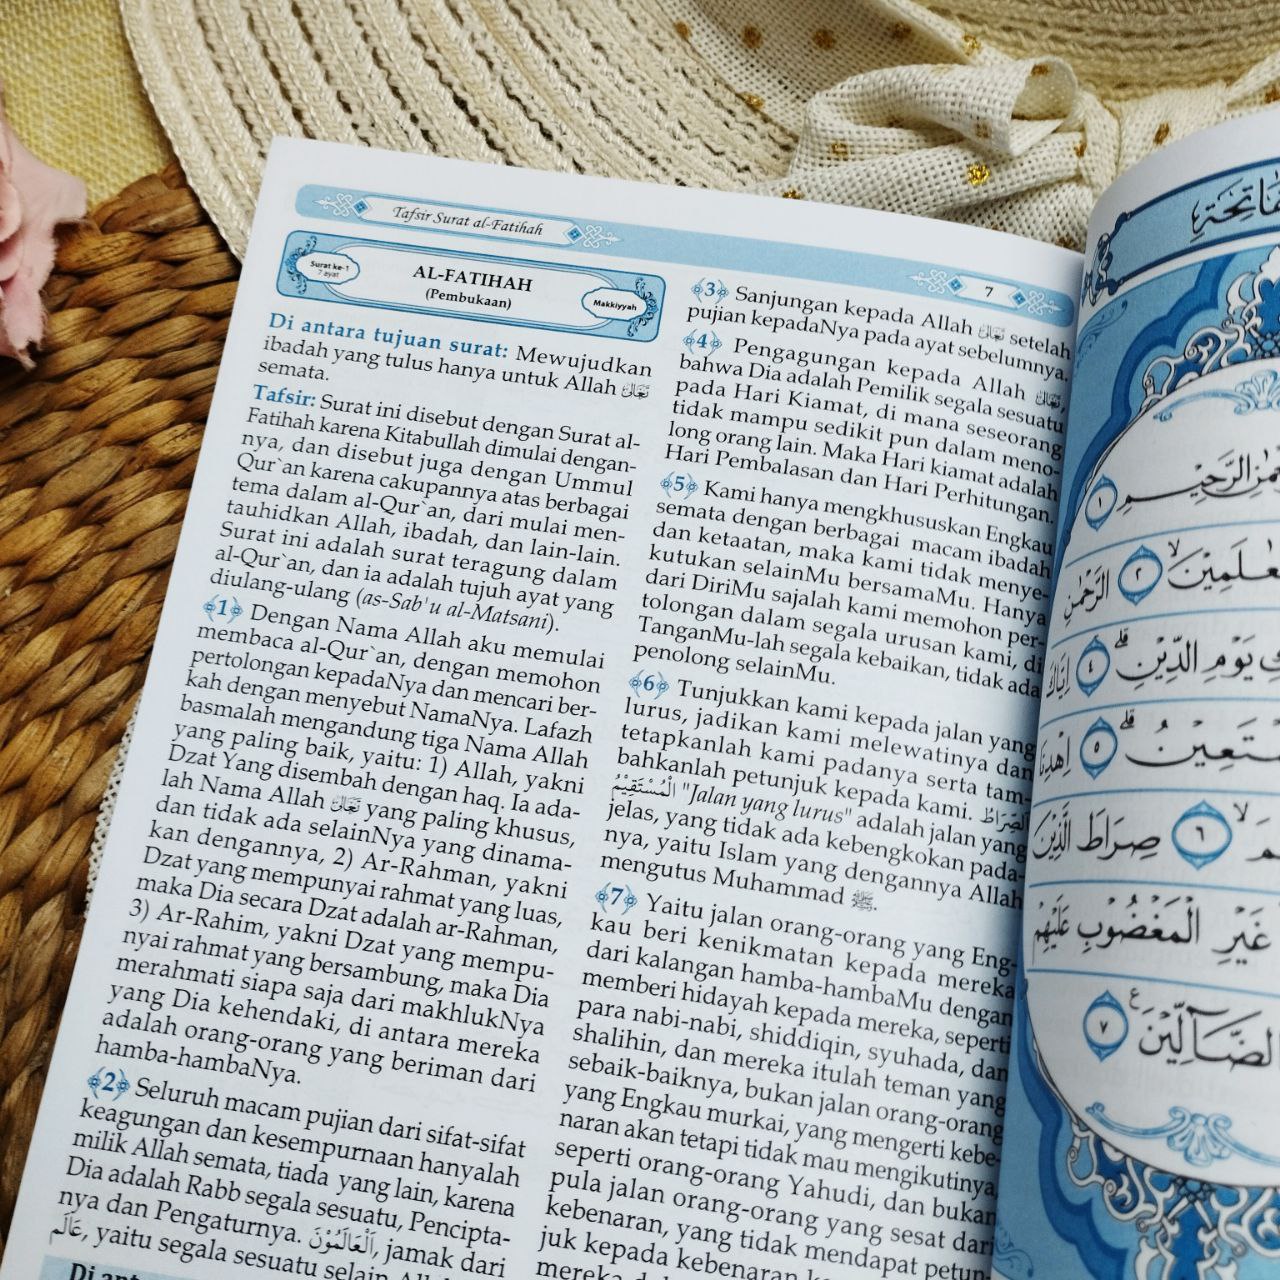 Tafsir Surat al-Fatihah
7
Surat ke-1
7 ayat
AL-FATIHAH
(Pembukaan)
Makkiyyah
Di antara tujuan surat: Mewujudkan
ibadah yang tulus hanya untuk Allah تَعَالَى
semata.
Tafsir: Surat ini disebut dengan Surat al-
Fatihah karena Kitabullah dimulai dengan-
nya, dan disebut juga dengan Ummul
Qur`an karena cakupannya atas berbagai
tema dalam al-Qur`an, dari mulai men-
tauhidkan Allah, ibadah, dan lain-lain.
Surat ini adalah surat teragung dalam
al-Qur`an, dan ia adalah tujuh ayat yang
diulang-ulang (as-Sab'u al-Matsani).
﴾1﴿ Dengan Nama Allah aku memulai
membaca al-Qur`an, dengan memohon
pertolongan kepadaNya dan mencari ber-
kah dengan menyebut NamaNya. Lafazh
basmalah mengandung tiga Nama Allah
yang paling baik, yaitu: 1) Allah, yakni
Dzat Yang disembah dengan haq. Ia ada-
lah Nama Allah تَعَالَى yang paling khusus,
dan tidak ada selainNya yang dinama-
kan dengannya, 2) Ar-Rahman, yakni
Dzat yang mempunyai rahmat yang luas,
maka Dia secara Dzat adalah ar-Rahman,
3) Ar-Rahim, yakni Dzat yang mempu-
nyai rahmat yang bersambung, maka Dia
merahmati siapa saja dari makhlukNya
yang Dia kehendaki, di antara mereka
adalah orang-orang yang beriman dari
hamba-hambaNya.
﴾2﴿ Seluruh macam pujian dari sifat-sifat
keagungan dan kesempurnaan hanyalah
milik Allah semata, tiada yang lain, karena
Dia adalah Rabb segala sesuatu, Pencipta-
nya dan Pengaturnya. اَلْعَالَمُوْنَ, jamak dari
عَالَم, yaitu segala sesuatu selain
﴾3﴿ Sanjungan kepada Allah تَعَالَى setelah
pujian kepadaNya pada ayat sebelumnya.
﴾4﴿ Pengagungan kepada Allah تَعَالَى,
bahwa Dia adalah Pemilik segala sesuatu
pada Hari Kiamat, di mana seseorang
tidak mampu sedikit pun dalam meno-
long orang lain. Maka Hari kiamat adalah
Hari Pembalasan dan Hari Perhitungan.
﴾5﴿ Kami hanya mengkhususkan Engkau
semata dengan berbagai macam ibadah
dan ketaatan, maka kami tidak menye-
kutukan selainMu bersamaMu. Hanya
dari DiriMu sajalah kami memohon per-
tolongan dalam segala urusan kami, di
TanganMu-lah segala kebaikan, tidak ada
penolong selainMu.
﴾6﴿ Tunjukkan kami kepada jalan yang
lurus, jadikan kami melewatinya dan
tetapkanlah kami padanya serta tam-
bahkanlah petunjuk kepada kami. الصِّرَاطَ
الْمُسْتَقِيْمُ "Jalan yang lurus" adalah jalan yang
jelas, yang tidak ada kebengkokan pada-
nya, yaitu Islam yang dengannya Allah
mengutus Muhammad ﷺ.
﴾7﴿ Yaitu jalan orang-orang yang Eng-
kau beri kenikmatan kepada mereka
dari kalangan hamba-hambaMu dengan
memberi hidayah kepada mereka, seperti
para nabi-nabi, shiddiqin, syuhada, dan
shalihin, dan mereka itulah teman yang
sebaik-baiknya, bukan jalan orang-orang
yang Engkau murkai, yang mengerti kebe-
naran akan tetapi tidak mau mengikutinya,
seperti orang-orang Yahudi, dan bukan
pula jalan orang-orang yang sesat dari
kebenaran, yang tidak mendapat petun-
juk kepada kebenaran
mereka
١
٢ الرَّحْمٰنِ
يَوْمِ الدِّيْنِۗ ٤ اِيَّاكَ
٥ اِهْدِنَا
٦ صِرَاطَ الَّذِيْنَ
غَيْرِ الْمَغْضُوْبِ عَلَيْهِمْ
الضَّاۤلِّيْنَ ࣖ ٧